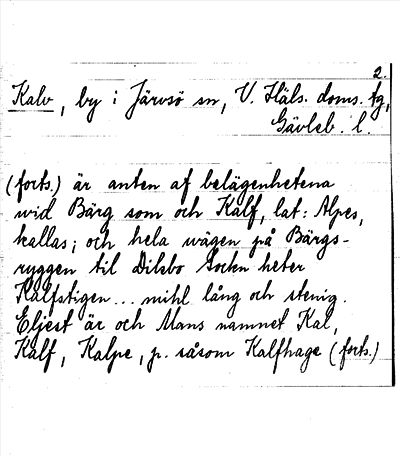 2.
Kalv, by i Järvsö sn, V. Häls. doms. tg,
Gävleb. l.
(forts.) är anten af belägenhetena
wid Bärg som och Kalf, lat: Alpes,
kallas; och hela wägen på Bärgs-
ryggen til Dilsbo Socken heter
Kalfstigen... mihl lång och stenig.
Eljest är och Mans namnet Kal,
Kalf, Kalpe, p. såsom Kalfhage (forts.)